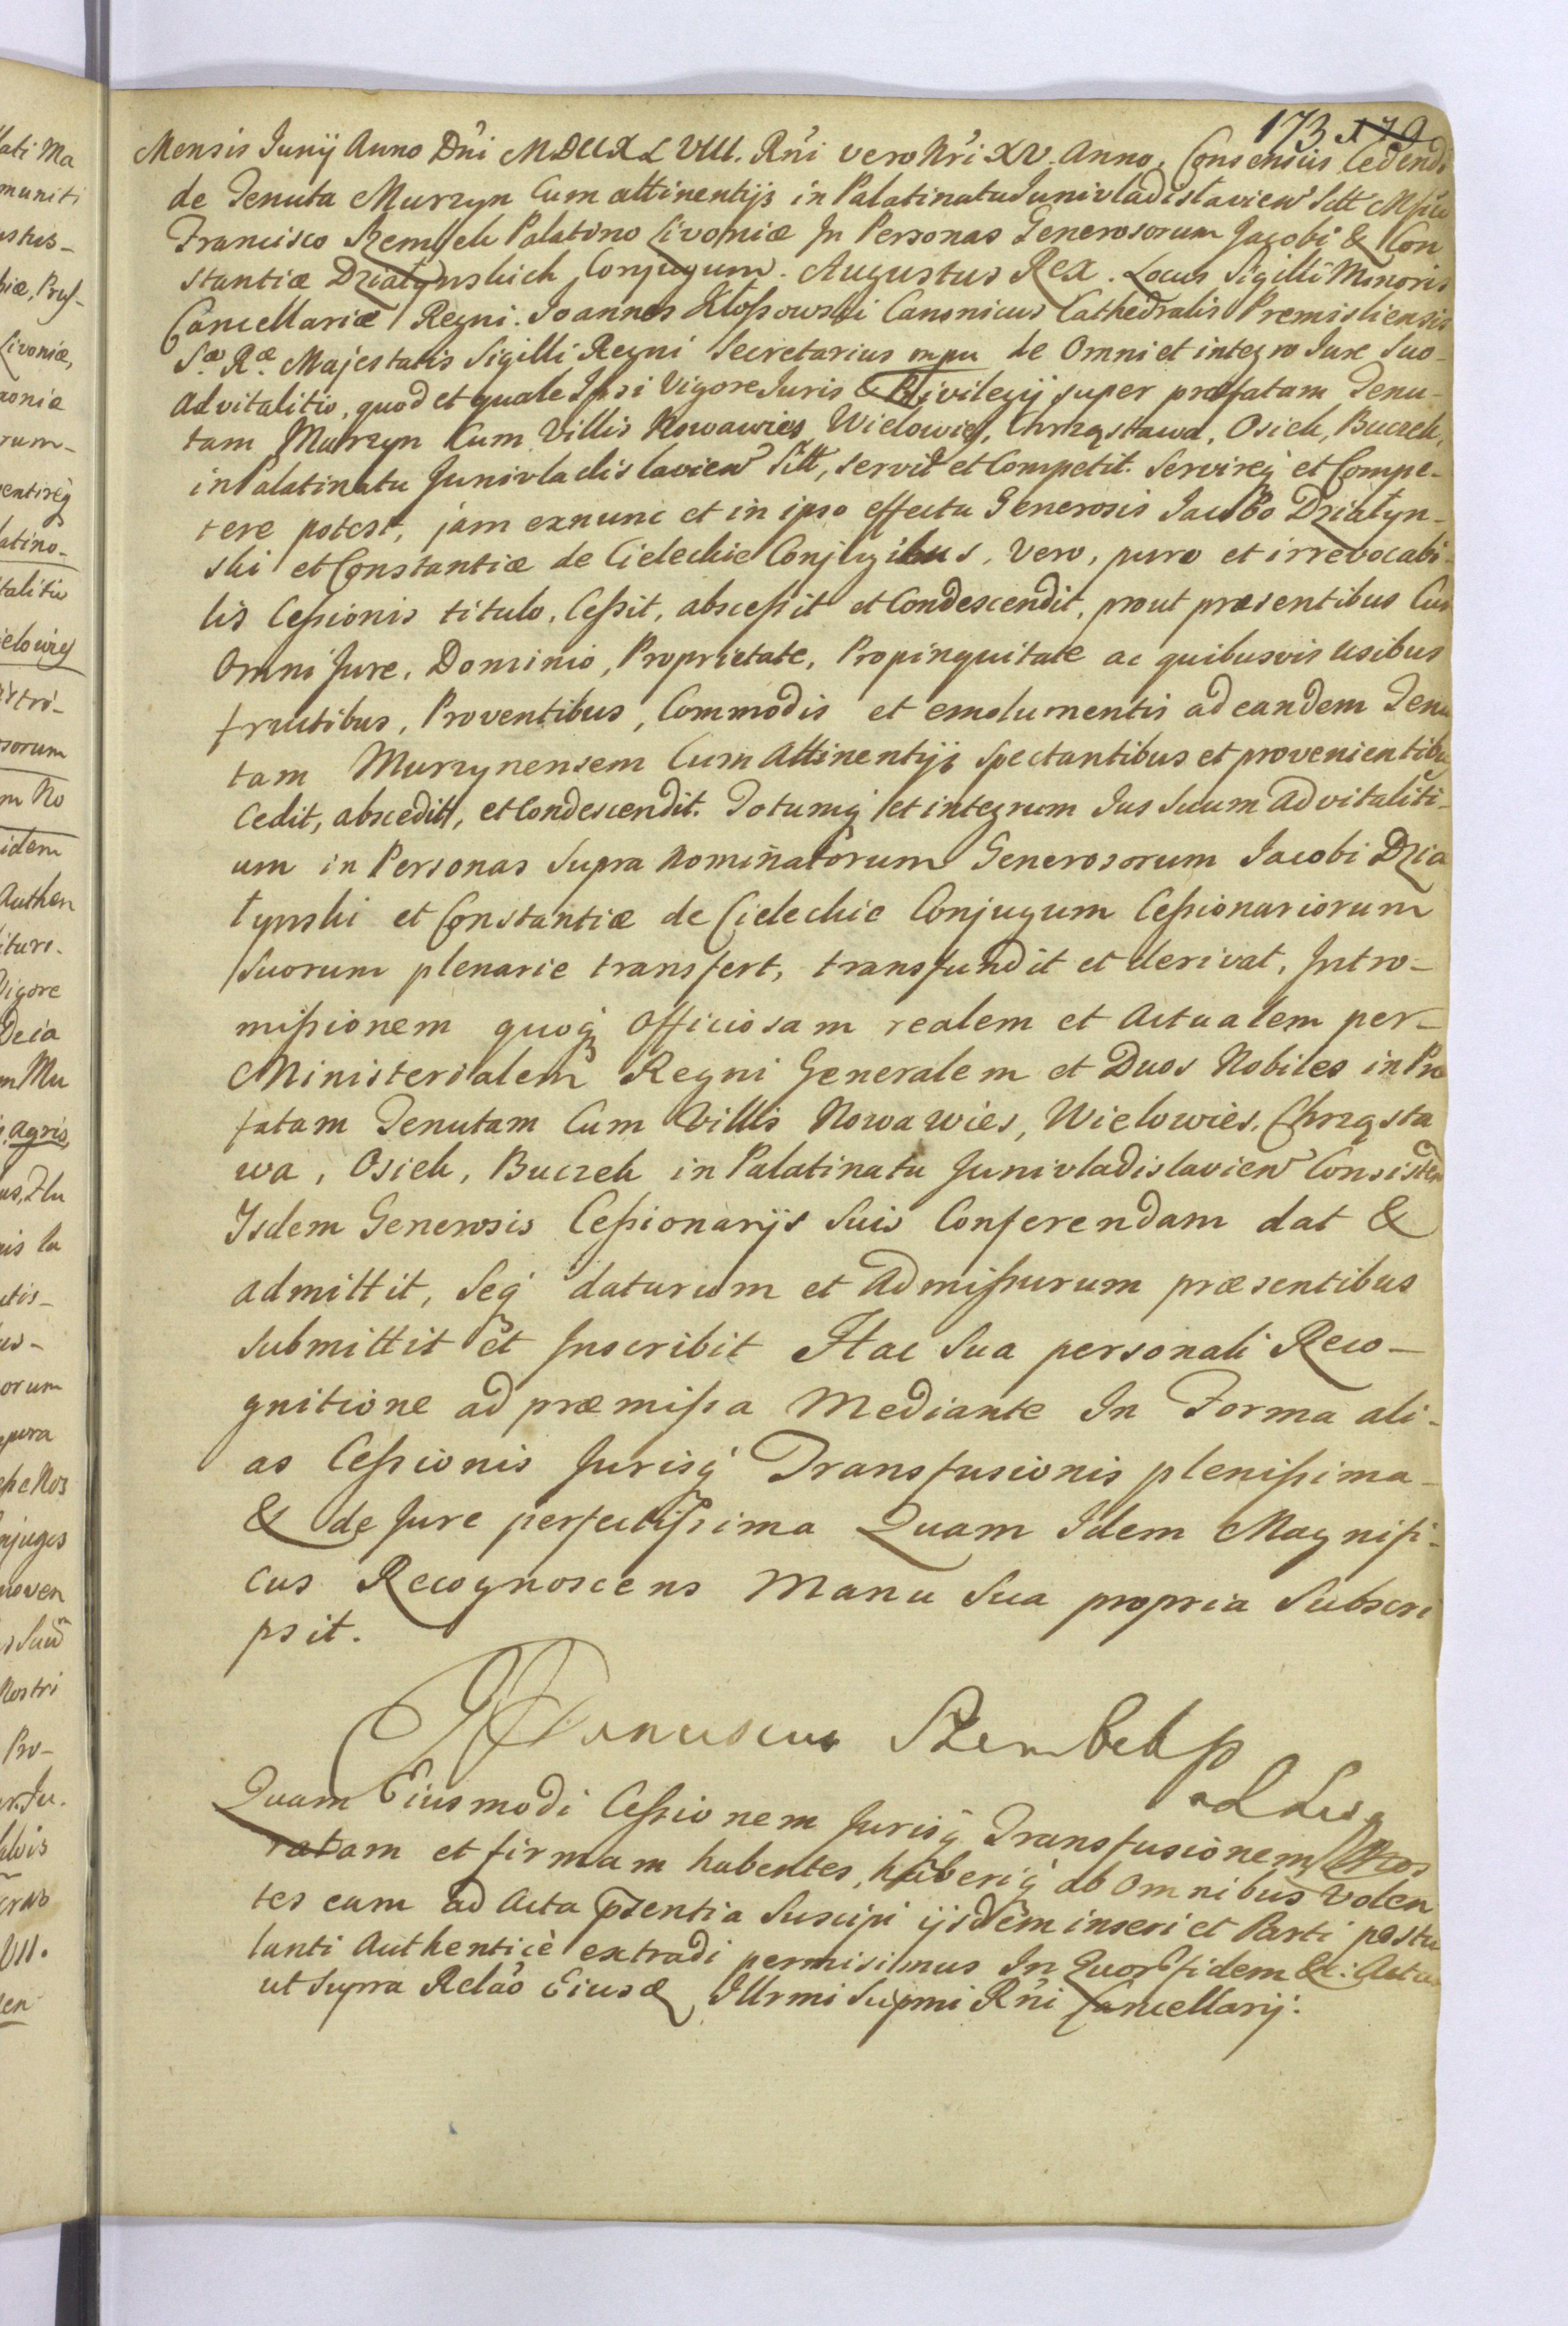 173 179
Mensis Junij Anno Dńi MDCCXLVIII. Rńi vero Nŕi XV. Anno. Consensus Cedendi
de Tenuta Murzyn Cum attinentijs in Palatinatu Junivladislavien Sitt Mfico
Francisco Szembek Palatino Livoniæ In Personas Generosorum Jacobi & Con
stantiæ Działynskich Conjugum. Augustus Rex. Locus Sigilli Minoris
Cancellariæ Regni. Joannes Kłossowski Canonicus Cathedralis Premisliensis
Sæ Ræ Majestatis Sigilli Regni Secretarius mpu de Omni et integro Jure Suo
Advitalitio, quod et quale Ipsi Vigore Juris & Privilegij super præfatam Tenu-
tam Murzyn Cum Villis Nowawies Wielowies, Chrząstawa, Osiek, Buczek,
in Palatinatu Junivladislavien Sitt, servit et Competit. Servireq et Compe-
tere potest, jam exnunc et in ipso effectu Generosis Jacobo Dziatyn-
ski et Constantiæ de Cieleckie Conjugibus, vero, puro et irrevocabi-
lis Cessionis titulo, Cessit, abscessit et Condescendit, prout præsentibus Cum
Omni Jure, Dominio, Proprietate, Propinquitate ac quibusvis usibus
fructibus, Proventibus, Commodis et emolumentis ad eandem Tenu
tam Murzynensem Cum Attinentijs spectantibus et provenientibus
Cedit, abscedit, et Condescendit. Totumq et integrum Jus Suum Advitaliti-
um in Personas Supra Nominatorum Generosorum Jacobi Dzia
łynski et Constantiæ de Cieleckie Conjugum Cessionariorum
Suorum plenarie transfert, transfundit et derivat, Intro-
missionem quoq Officiosam realem et Actualem per
Ministerialem Regni Generalem et Duos Nobiles in Præ
fatam Tenutam Cum Villis Nowawies, Wielowies, Chrząsta
wa, Osiek, Buczek in Palatinatu Junivladislavien Consisten
Isdem Generosis Cessionarijs Suis Conferendam dat &
admittit, Seq daturum et Admissurum præsentibus
submittit et Inscribit Hac Sua personali Reco-
gnitione ad præmissa Mediante In Forma ali-
as Cessionis Jurisq Transfusionis plenissima
& de Jure perfectissima Quam Idem Magnifi-
cus Recognoscens Manu Sua propria Subscri
psit.
Franciscus Szembek
Quam Eiusmodi Cessionem Jurisq Transfusionem Nos
ratam et firmam habentes, haberiq ab Omnibus Volen
tes eam ad Acta pñsentia Suscipi ijsdem inseri et Parti postu
lanti Authenticè extradi permisimus In Quor fidem &c: Actum
ut Supra Relaó Eiusd Illrmi Supmi Rńi Cancellarij.